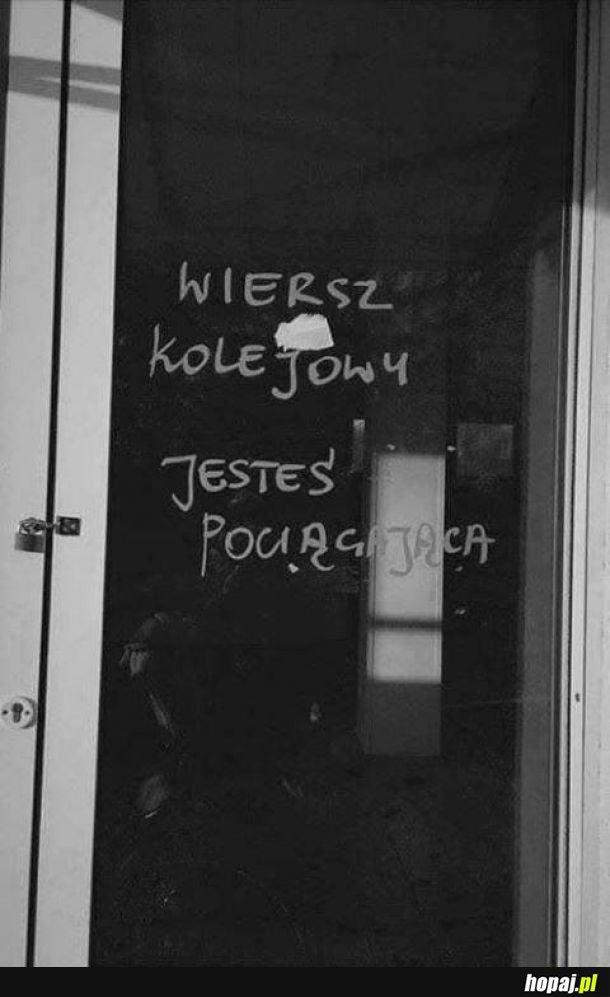 WIERSZ
KOLEJOWY
JESTEŚ
POCIĄGAJĄCA
hopaj.pl